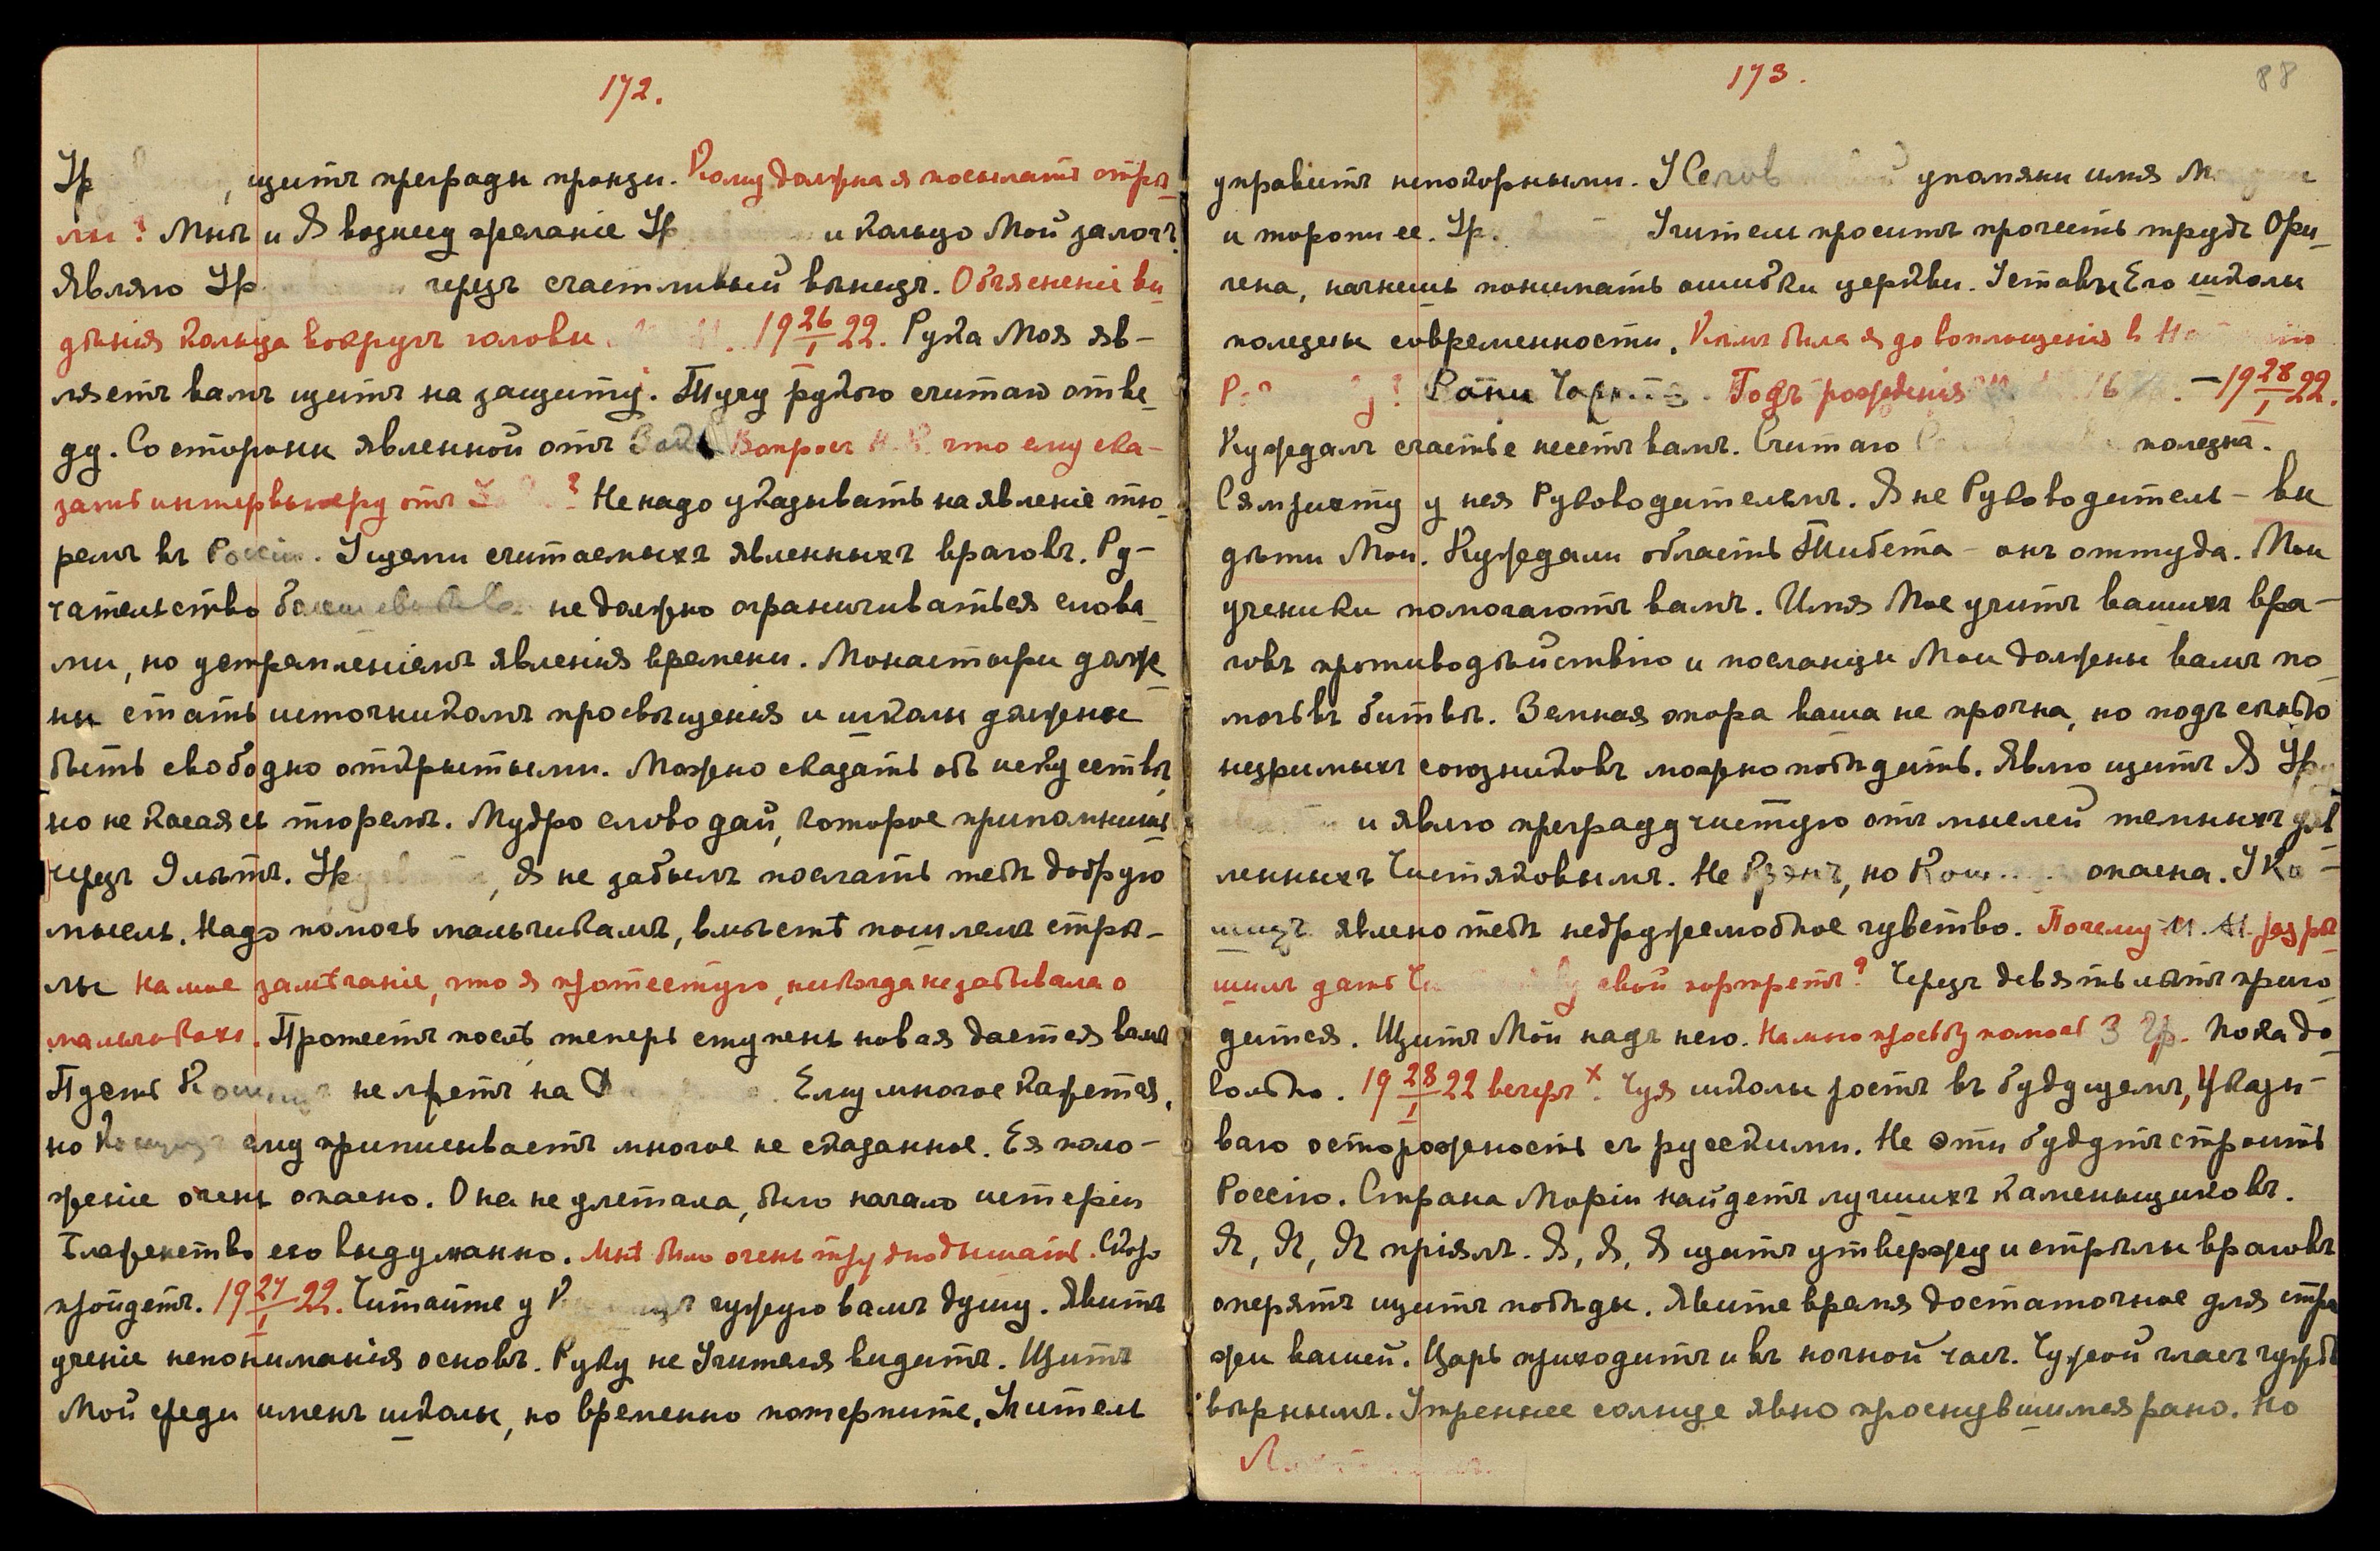 172.
Ур , щитъ преграды пронзи. Кому должна я посылать стрѣ-
лы? Мнѣ и Я вознесу желаніе Ур и кольцо Мой залогъ.
Являю Ур черезъ счастливый вѣнецъ. Объясненіе ви-
дѣнія кольца вокругъ головы. 19 26/I 22. Рука Моя яв-
ляетъ вамъ щитъ на защиту. Тучу рукою считаю отве-
ду. Со стороны явленной отъ Вопросъ Н.К. что ему ска-
зать интервьюеру отъ ? Не надо указывать на явленіе тю-
ремъ въ Россіи. Ущеми считаемыхъ явленныхъ враговъ. Ру-
чательство не должно ограничиваться слова-
ми, но устремленіемъ явленія времени. Монастыри долж-
ны стать источникомъ просвѣщенія и школы должны
быть свободно открытыми. Можно сказать объ искусствѣ,
но не касаясь тюремъ. Мудро слово дай, которое припомнишь
черезъ 9 лѣтъ. Ур , Я не забылъ послать тебѣ добрую
мысль. Надо помочь мальчикамъ, вмѣстѣ пошлемъ стрѣ-
лы На мое замѣчаніе, что я протестую, никогда не забывала о
мальчикахъ. Протестъ послѣ, теперь ступень новая дается вамъ
Пусть не лжетъ на Ему многое кажется,
но ему приписываетъ многое не сказанное. Ея поло-
женіе очень опасно. Она не улетала, было начало истеріи
Блаженство его выдуманно. Мнѣ было очень трудно дышать. Скоро
пройдетъ. 19 27/I 22. Читайте у чужую вамъ душу. Явитъ
ученіе непониманія основъ. Руку не Учителя видитъ. Щитъ
Мой среди именъ школы, но временно потерпите, Учитель
173.
88
управитъ непокорными. У упомяни имя М
и торопи ее. Ур. Учитель проситъ прочесть трудъ Ори-
гена, начнешь понимать ошибки церкви. Уставы Его школы
полезны современности. Кѣмъ была я до воплощенія в
? Годъ рожденія 16 . — 19 28/I 22.
Куждалъ счастье несетъ вамъ. Считаю полезна.
у нея Руководителемъ. Я не Руководитель – вы
дѣти Мои. Куждали область Тибета – онъ оттуда. Мои
ученики помогаютъ вамъ. Имя Мое учитъ вашихъ вра-
говъ противодѣйствію и посланцы Мои должны вамъ по-
мочь въ битвѣ. Земная опора ваша не прочна, но подъ сѣнью
незримыхъ союзниковъ можно побѣдить. Явлю щитъ Я Ур
и явлю преграду чистую отъ мыслей темныхъ яв-
ленныхъ Чистяковымъ. Не , но опасна. У
явлено тебѣ недружелюбное чувство. Почему М.М. разрѣ-
шилъ дать свой портретъ? Черезъ девять лѣтъ приго-
дится. Щитъ Мой надъ него. На мою просьбу помочь З. Гр. Пока до-
вольно. 19 28/I 22 вечеръ x. Чуя школы ростъ въ будущемъ, указы-
ваю осторожность съ русскими. Не эти будутъ строить
Россію. Страна Моріи найдетъ лучшихъ каменьщиковъ.
Я, Я, Я пріялъ. Я, Я, Я щитъ утвержу и стрѣлы враговъ
оперятъ щитъ побѣды. Явите время достаточное для стра-
жи вашей. Царь приходитъ и въ ночной часъ. Чужой гласъ чуждъ
вѣрнымъ. Утреннее солнце явно проснувшимся рано. Но